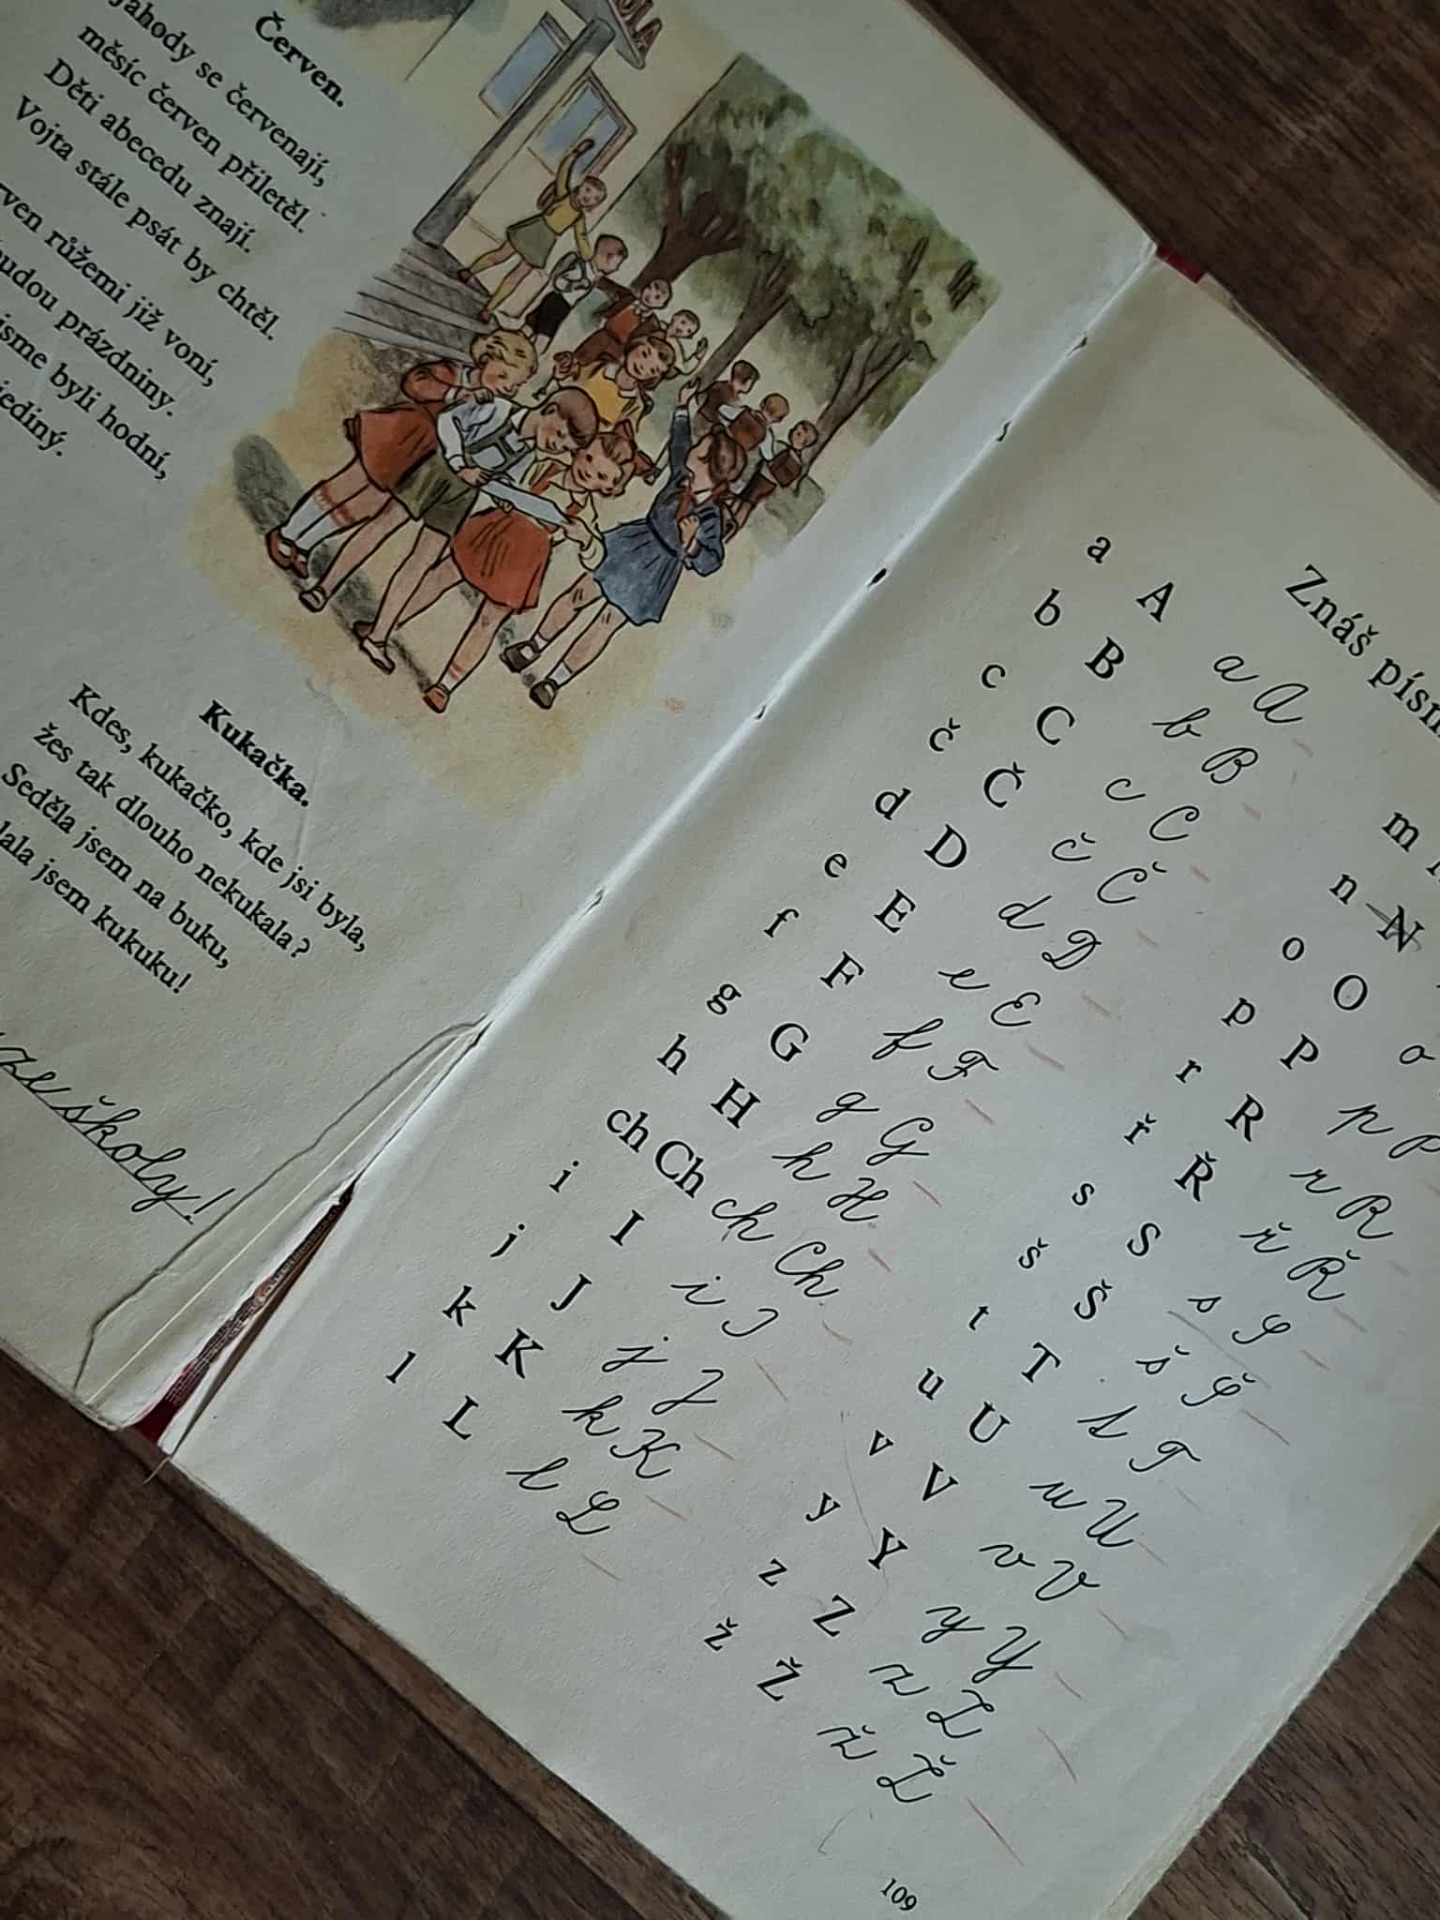 Červen.
jahody se červenají,
měsíc červen přiletěl.
Děti abecedu znají.
Vojta stále psát by chtěl.
růžemi již voní,
prázdniny.
byli hodní,
Kukačka.
Kdes, kukačko, kde jsi byla,
žes tak dlouho nekukala?
Seděla jsem na buku,
jsem kukuku!
ze školy!
Znáš
a A a A
b B b B
c C c C
č Č č Č
d D d D
e E e E
f F f F
g G g G
h H h H
ch Ch ch Ch
i I i I
j J j J
k K k K
l L l L
m
n N
o O o
p P p P
r R r R
ř Ř ř Ř
s S s S
š Š š Š
t T t T
u U u U
v V v V
y Y y Y
z Z z Z
ž Ž ž Ž
109